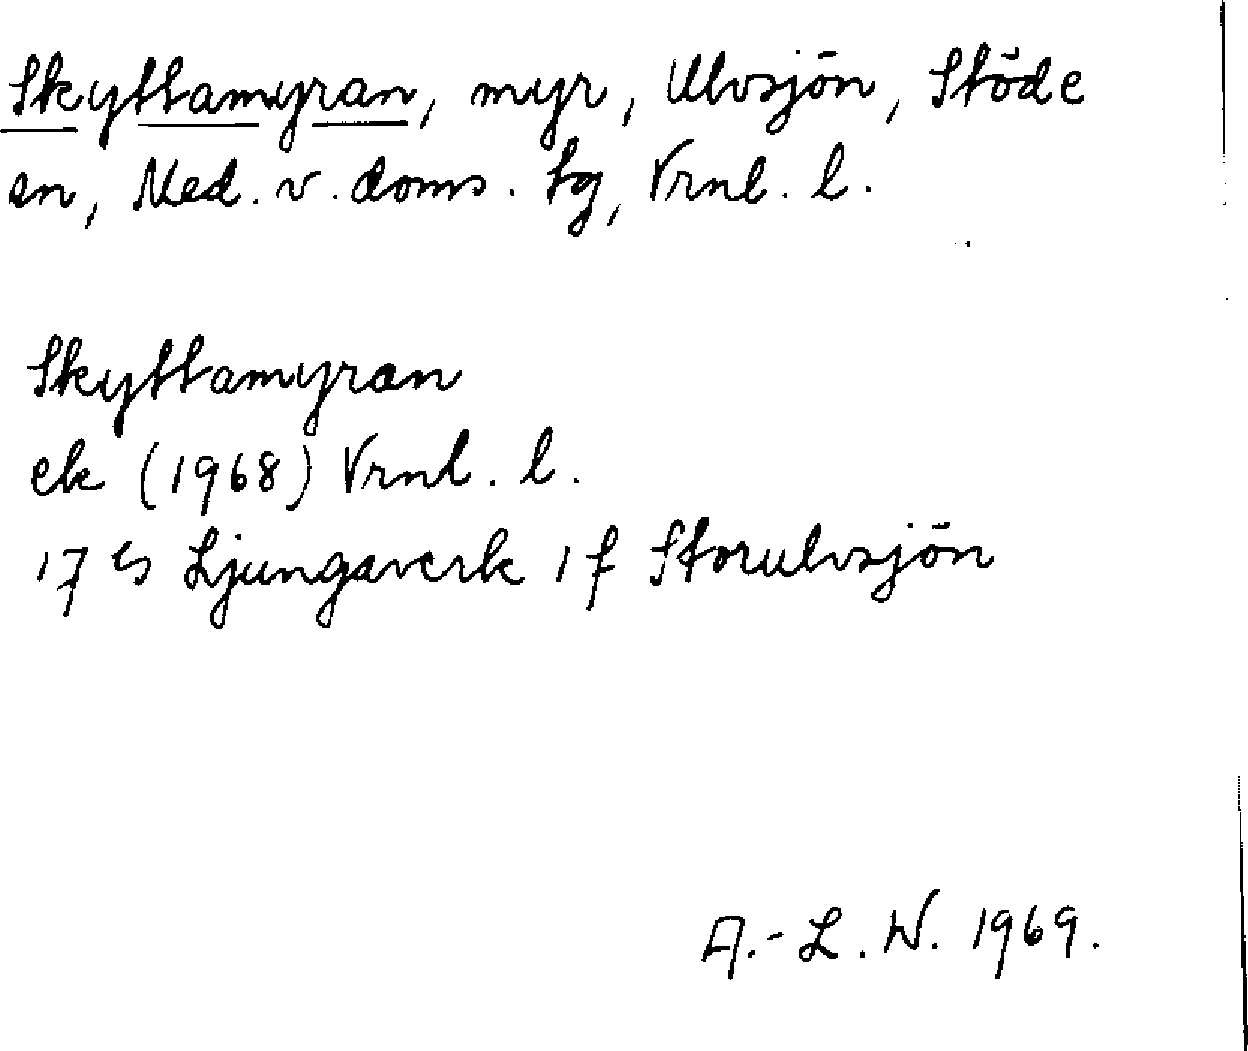 Skyttamyran, myr, Ulvsjön, Stöde
sn, Med. v. doms. tg, Vrnl. l.
Skyttamyran
ek (1968) Vrnl. l.
17 G Ljungaverk 1 f Storulvsjön
A.-L. W. 1969.